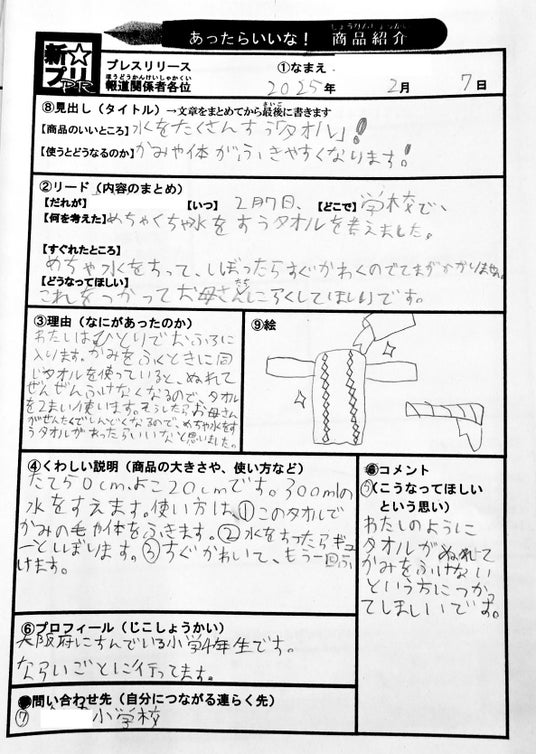 あったらいいな！ 商品紹介
しょうひんしょうかい
新☆プリPR
プレスリリース
ほうどうかんけいしゃかくい
報道関係者各位
①なまえ
2025年 2月 7日
⑧見出し（タイトル）→文章をまとめてから最後に書きます
さいご
【商品のいいところ】水をたくさんすう「タオル」！
【使うとどうなるのか】かみや体がふきやすくなります！
②リード（内容のまとめ）
【だれが】 【いつ】 2月7日、 【どこで】学校で、
【何を考えた】めちゃくちゃ水をすうタオルを考えました。
【すぐれたところ】
めちゃ水をすって、しぼったらすぐかわくのでてまがかかりません。
【どうなってほしい】
これをつかってお母さんたちにらくしてほしいです。
③理由（なにがあったのか）
わたしはひとりでおふろに
入ります。かみをふくときに同
じタオルを使っていると、ぬれて
ぜんぜんふけなくなるので、タオル
を2まい使います。そうしたらお母さん
がせんたくでしんどくなるので、めちゃ水をす
うタオルがあったらいいいなと思いました。
⑨絵
④くわしい説明（商品の大きさや、使い方など）
たて50cm、よこ20cmです。300mlの
水をすえます。使い方は、①このタオルで
かみの毛や体をふきます。②水をすったらギュ
ーとしぼります。③すぐかわいて、もう一回ふ
けます。
⑤コメント
（こうなってほしい
という思い）
わたしのように
タオルがぬれて
かみをふけない
という方につかっ
てほしいです。
⑥プロフィール（じこしょうかい）
大阪府にすんでいる小学4年生です。
ならいごとに行ってます。
⑦問い合わせ先（自分につながる連らく先）
小学校